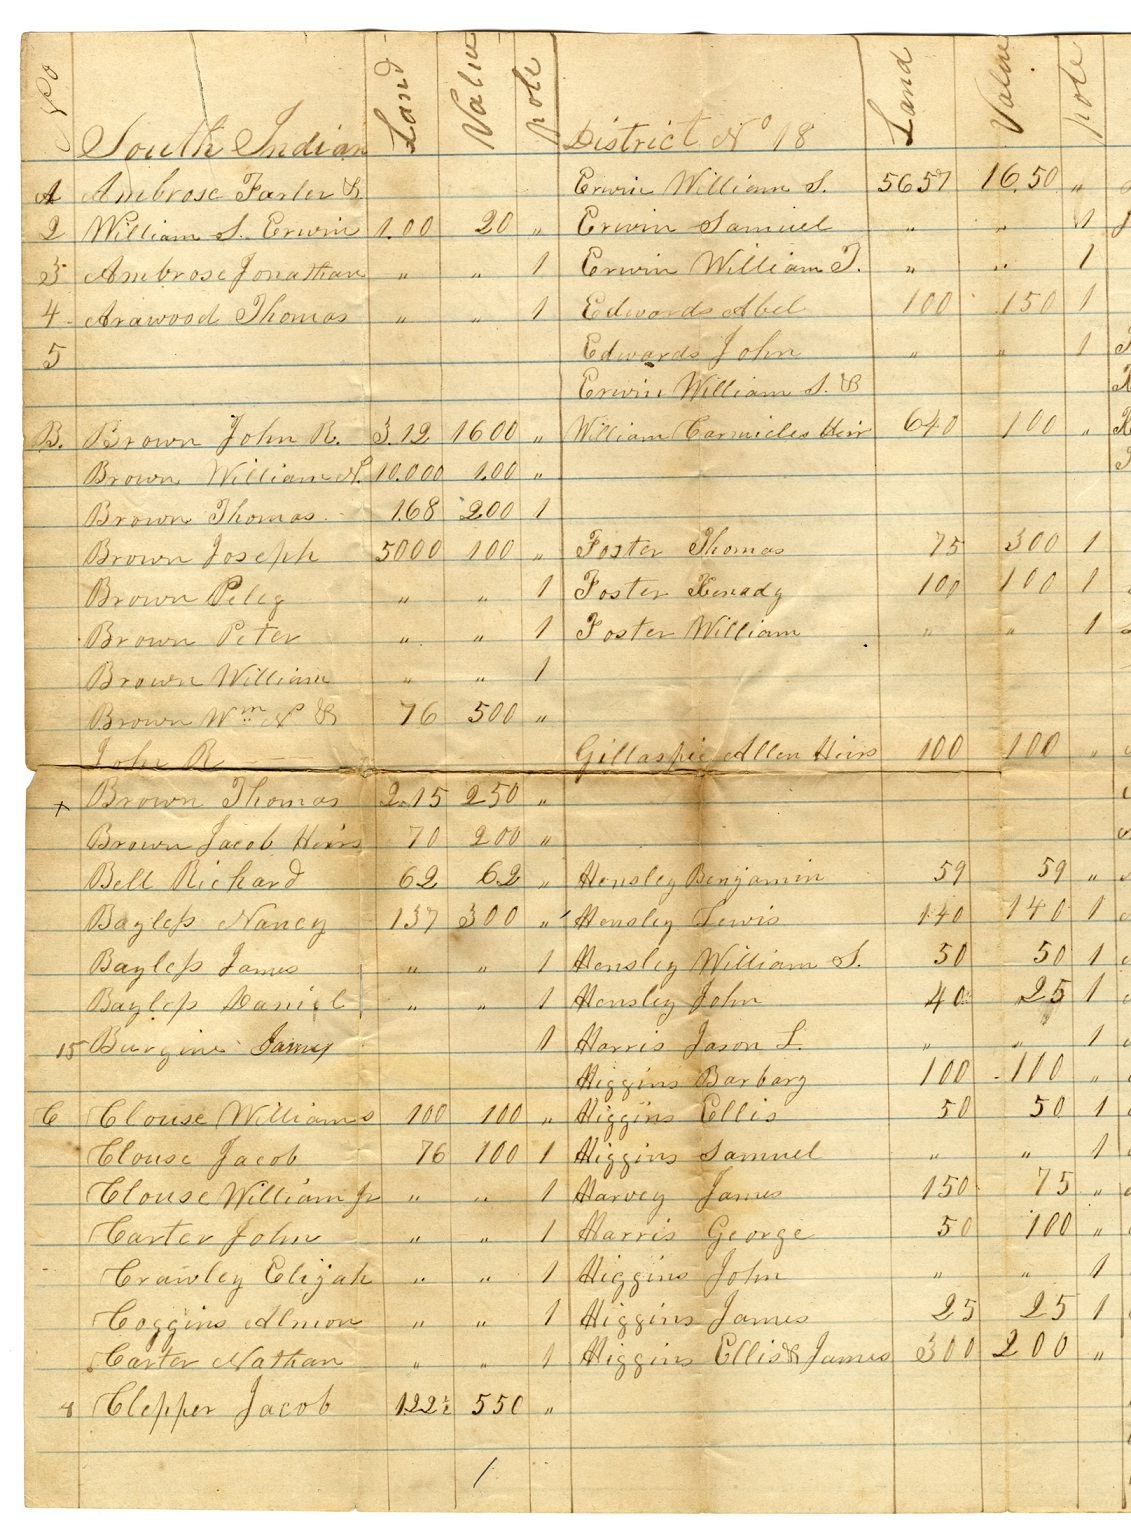 No Land Value pole Land Value pole
South Indian District No 18
A Ambrose Farler &
2 William S. Erwin 1.00 20 "
3 Ambrose Jonathan " " 1
4 Arawood Thomas " " 1
5
B. Brown John R. 3.12 1600 "
Brown William N. 10.000 1.00 "
Brown Thomas 168 200 1
Brown Joseph 5000 100 "
Brown Peleg " " 1
Brown Peter " " 1
Brown William " " 1
Brown Wm N & 76 500 "
John R
x Brown Thomas 2.15 250 "
Brown Jacob Heirs 70 200 "
Bell Richard 62 62 "
Bayless Nancy 137 300 "
Bayless James " " 1
Bayless Daniel " " 1
15 Burgine James 1
C Clouse Williams 100 100 "
Clouse Jacob 76 100 1
Clouse William Jr " " 1
Carter John " " 1
Crawley Elijah " " 1
Coggins Almon " " 1
Carter Nathan " " 1
8 Clepper Jacob 122½ 550 "
/
Erwin William S. 5657 16.50 "
Erwin Samuel " " 1
Erwin William T. " " 1
Edwards Abel 100 150 1
Edwards John " " 1
Erwin William S. &
William Carmicles Heir 640 100 "
Foster Thomas 75 300 1
Foster Kenady 100 100 1
Foster William " " 1
Gillaspie Allen Heirs 100 100 "
Hensley Benjamin 59 59 "
Hensley Lewis 140 140 1
Hensley William S. 50 50 1
Hensley John 40 25 1
Harris Jason L. " " 1
Higgins Barbary 100 100 "
Higgins Ellis 50 50 1
Higgins Samuel " " 1
Harvey James 150 75 "
Harris George 50 100 "
Higgins John " " 1
Higgins James 25 25 1
Higgins Ellis & James 300 200 "